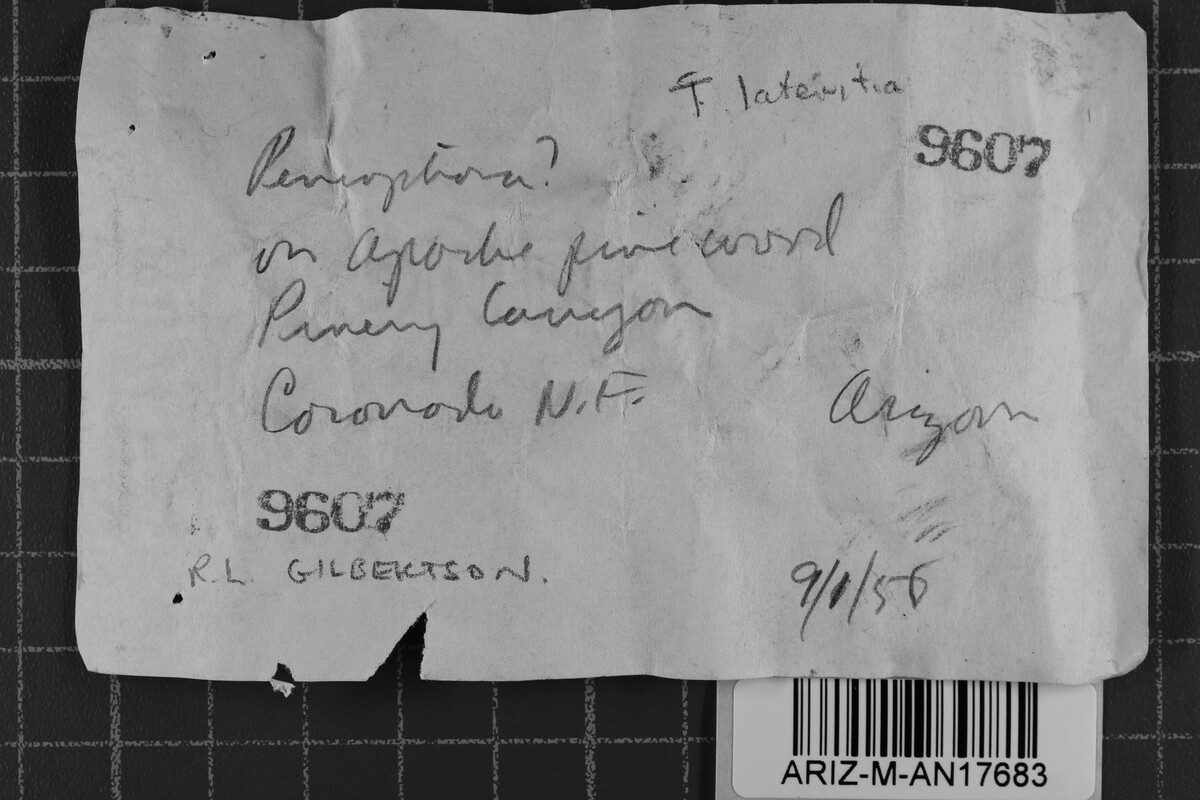 T. lateritia
9607
Peniophora?
on apache pine wood
Pinery Canyon
Coronado N.F. Arizona
9607
R.L. GILBERTSON.
9/1/56
ARIZ-M-AN17683